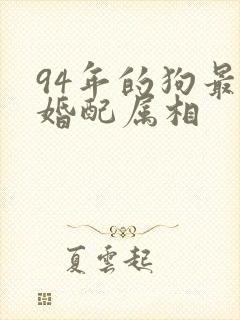 94年的狗最
婚配属相
夏雲起